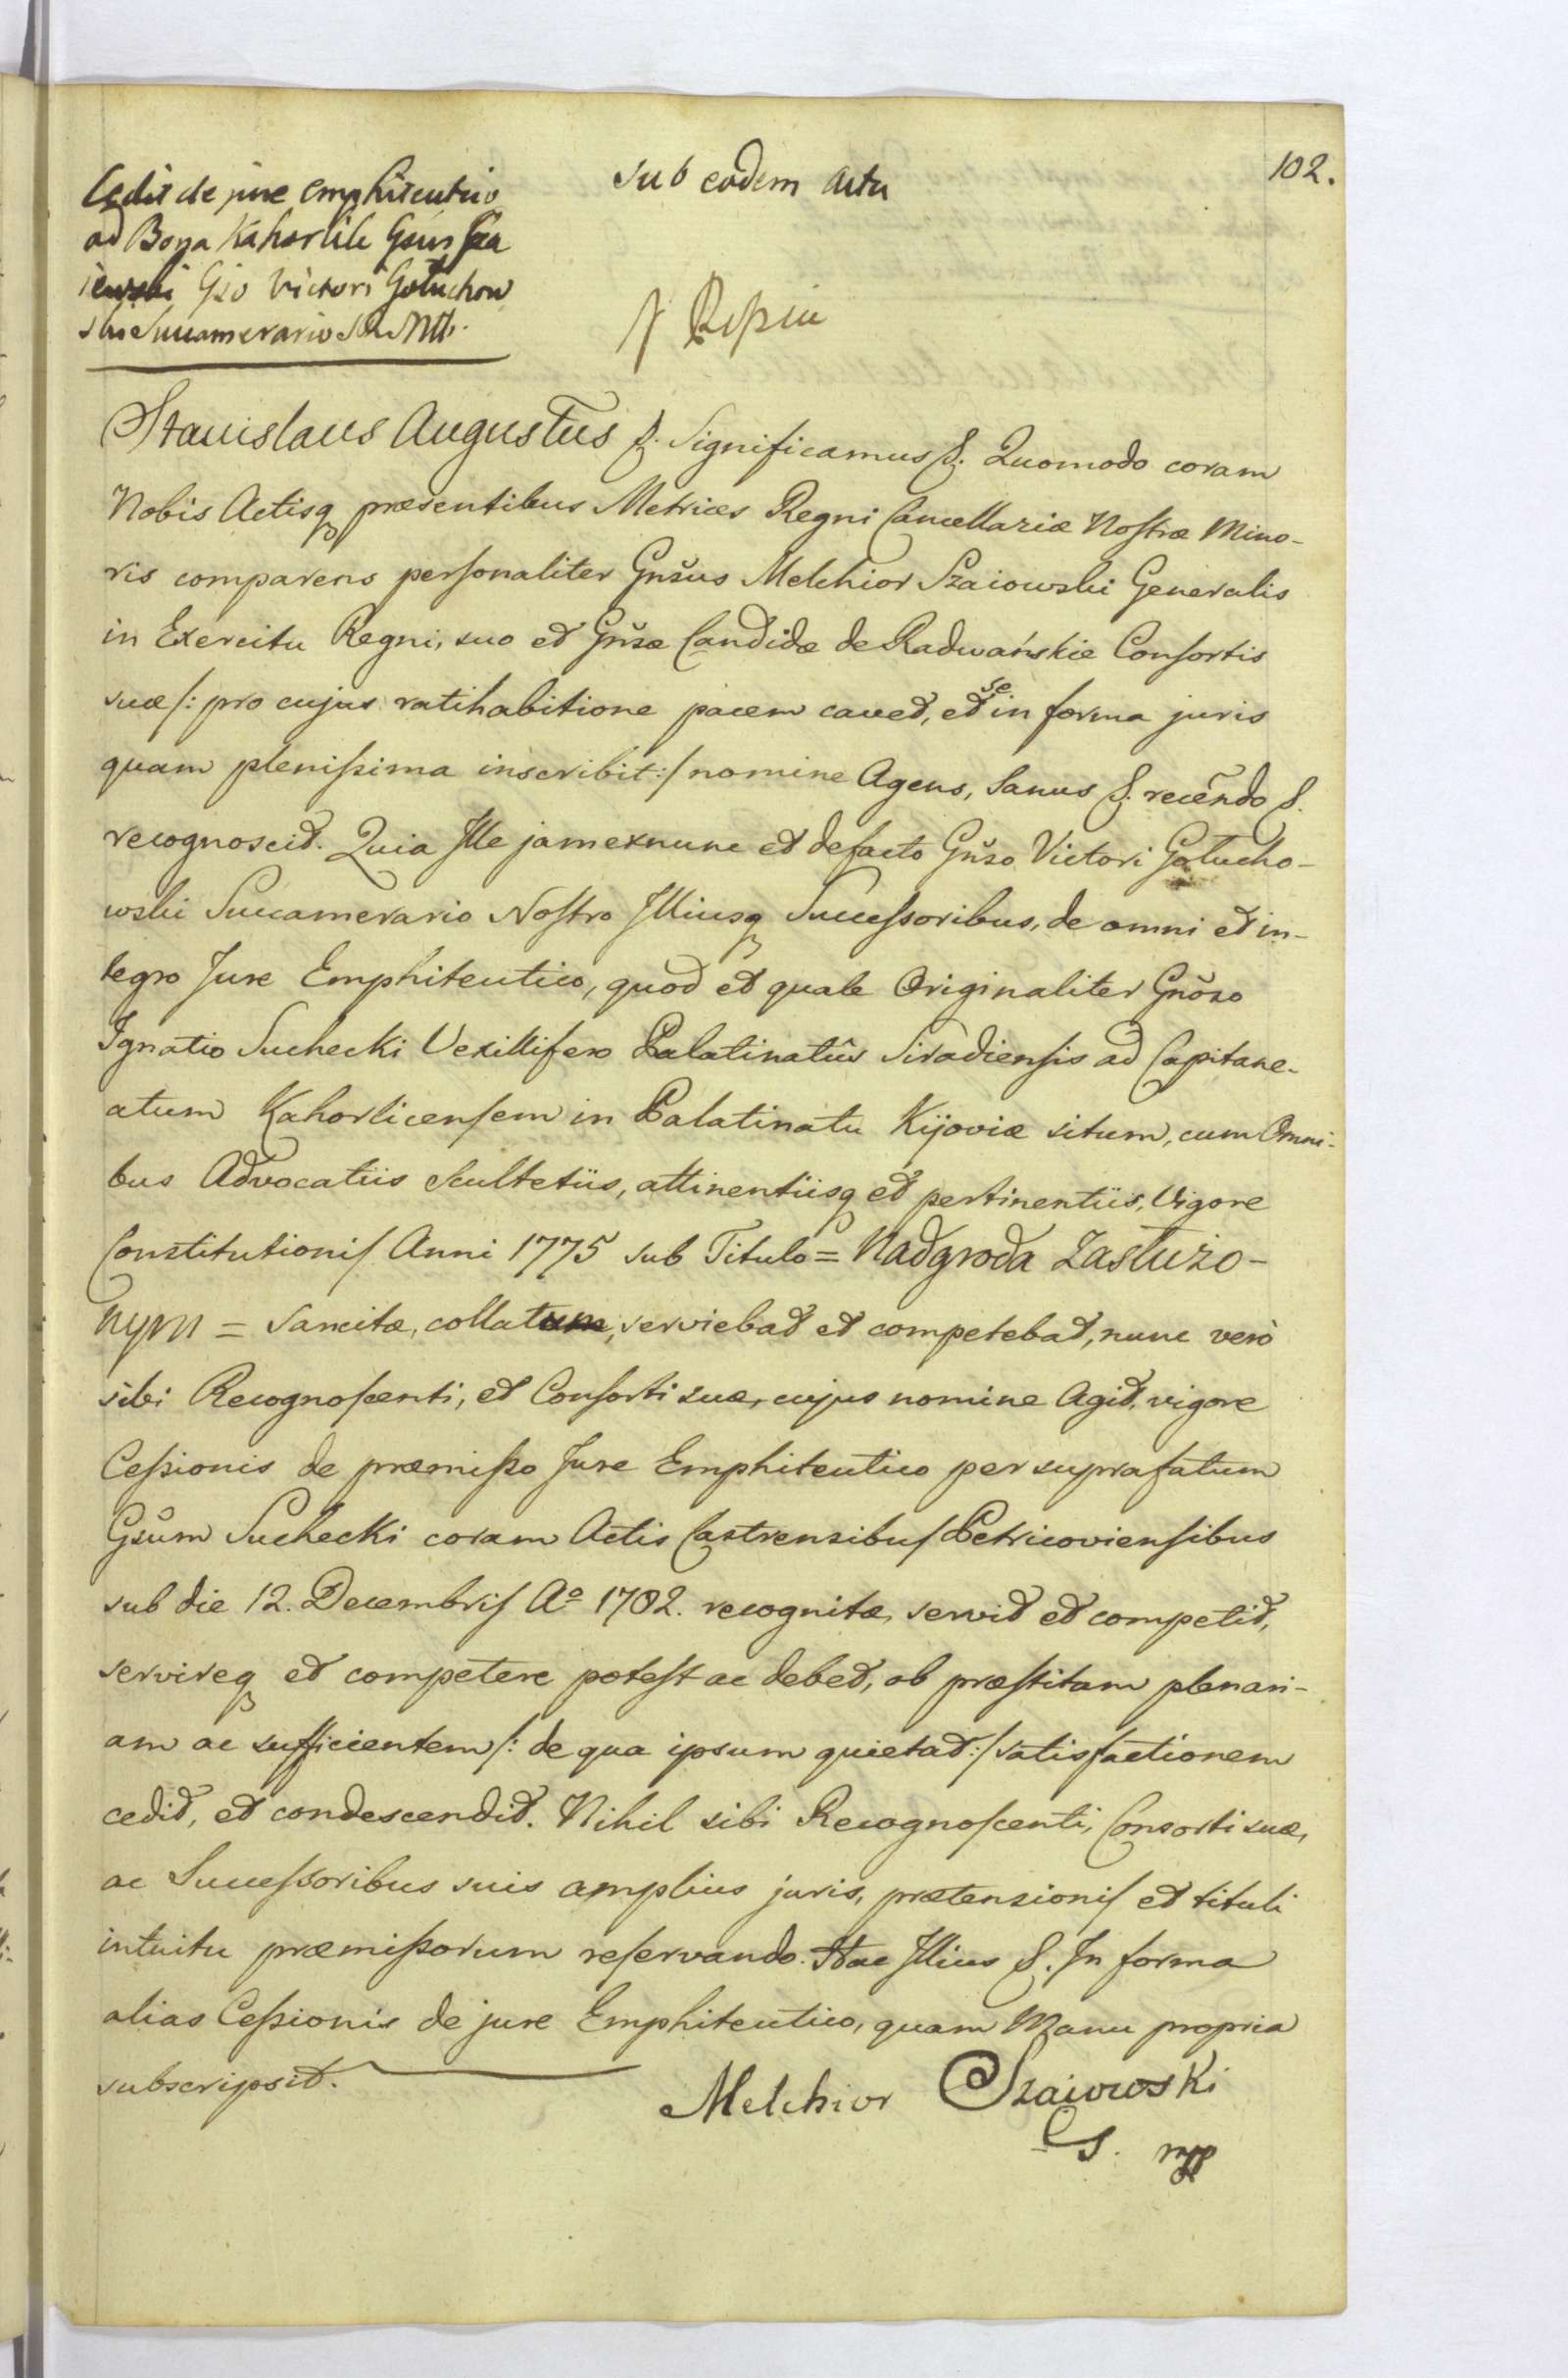 102.
sub eodem actu
Cedit de jure emphiteutico
ad Bona Kaharlik Gsus Sza
iewski Gso Victori Gołuchow
ski Succamerario
Stanislaus Augustus &. Significamus &. Quomodo coram
Nobis Actisq præsentibus Metrices Regni Cancellariæ Nostræ Mino-
ris comparens personaliter Gnšus Melchior Szaiowski Generalis
in Exercitu Regni, suo et Gnšæ Candidæ de Radwańskie Consortis
suæ /: pro cujus ratihabitione pacem cavet, et se in forma juris
quam plenissima inscribit :/ nomine Agens, Sanus &. recẽndo &.
recognoscit. Quia Ille jamexnunc et defacto Gnšo Victori Gołucho-
wski Succamerario Nostro Illiusq Successoribus, de omni et in-
tegro Jure Emphiteutico, quod et quale Originaliter Gnõso
Ignatio Suchecki Vexillifero Palatinatûs Siradiensis ad Capitane-
atum Kahorlicensem in Palatinatu Kijoviæ situm, cum Omni-
bus Advocatiis Scultetiis, attinentiisq et pertinentiis, Vigore
Constitutionis Anni 1775 sub Titulo = Nadgroda Zasłużo-
nym = sancitæ, collatum, serviebat et competebat, nunc verò
sibi Recognoscenti, et Consorti suæ, cujus nomine Agit, vigore
Cessionis de præmisso Jure Emphiteutico per suprafatum
Gsũm Suchecki coram Actis Castrensibus Petricoviensibus
sub die 12. Decembris Aº 1782. recognitæ, servit et competit,
servireq et competere potest ac debet, ob præstitam plenari-
am ac sufficientem /: de qua ipsum quietat :/ satisfactionem
cedit, et condescendit. Nihil sibi Recognoscenti, Consorti suæ,
ac Successoribus suis amplius juris, prætensionis et tituli
intuitu præmissorum reservando. Hac Illius &. In forma
alias Cessionis de jure Emphiteutico, quam Manu propria
subscripsit.
Melchior Szaiowski
G. mpp